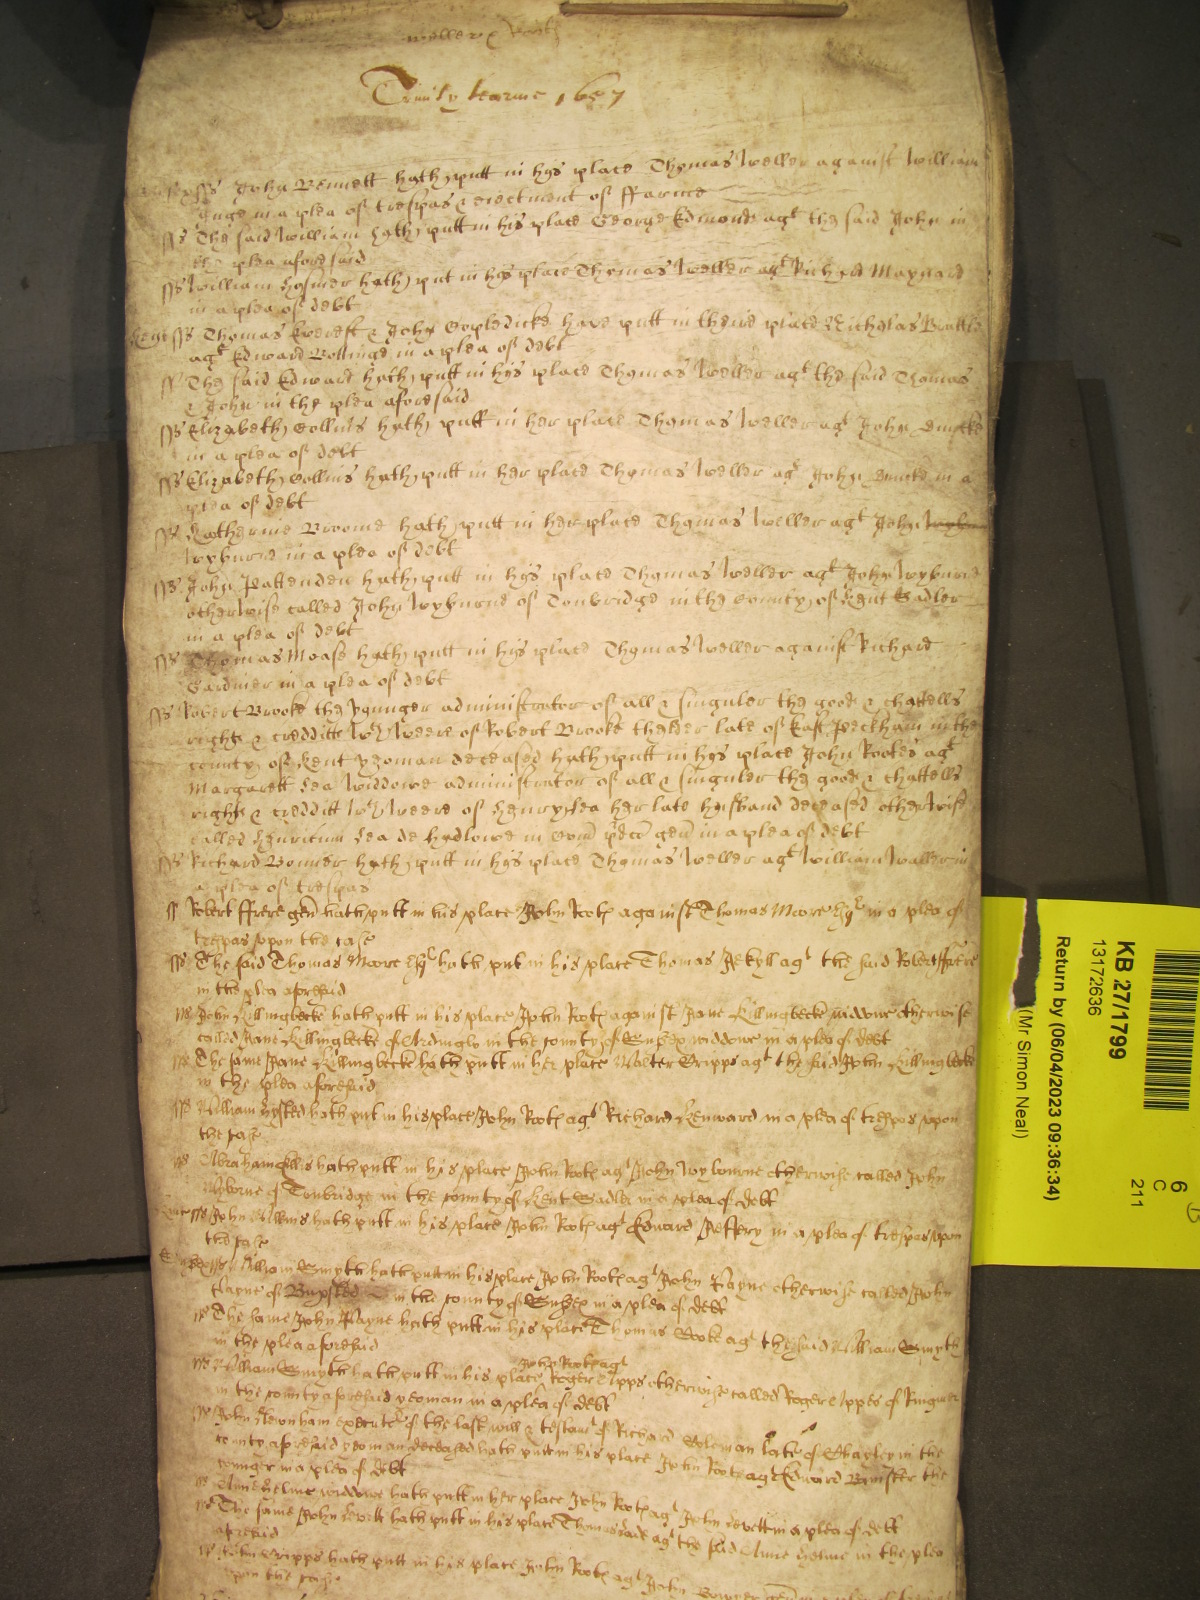 Weller & Rootes
Trinity tearme 1657
ss John Bennett hath putt in hys place Thomas Weller against William
in a plea of trespas & eiectment of ffarme
ss The said William hath putt in his place George Edmonds agt the said John in
the plea aforesaid
ss William Hosmer hath put in hys place Thomas Weller agt Richard Maynard
in a plea of debt
Kent ss Thomas & John Copledicke have putt in theire place Nicholas
agt Edward Collinge in a plea of debt
ss The said Edward hath putt in hys place Thomas Weller agt the said Thomas
& John in the plea aforesaid
ss Elizabeth Collins hath putt in her place Thomas Weller agt John
in a plea of debt
ss Elizabeth Collins hath putt in her place Thomas Weller agt John in a
plea of debt
ss Katherine Broome hath putt in her place Thomas Weller agt John
Wyburne in a plea of debt
ss John Pattenden hath putt in hys place Thomas Weller agt John Wyburne
otherwise called John Wyburne of Tonbridge in the County of Kent Sadler
in a plea of debt
ss Thomas Moase hath putt in hys place Thomas Weller against Richard
Gardiner in a plea of debt
ss Robert Brooke the younger administrator of all & singuler the goods & chattells
rights & creditts wch weere of Robert Brooke thelder late of East Peckham in the
county of Kent yeoman deceased hath putt in hys place John Rootes agt
Margarett Lea widdowe administrator of all & singuler the goods & chattells
rights & credditt wch weere of Henry Lea her late husband deceased otherwise
called Henricum Lea de Hadlowe in Com pdco gen in a plea of debt
ss Richard Bonner hath putt in hys place Thomas Weller agt William Waller in
a plea of trespas
ss Robert ffrere gen hath putt in his place John Rootes against Thomas Moore Esqr in a plea of
trespas upon the case
ss The said Thomas Moore Esqr hath put in his place Thomas Jekyll agt the said Robert ffrere
in the plea aforesaid
ss John Killingbecke hath putt in his place John Rootes against Jane Killingbecke widdowe otherwise
called Jane Killingbecke of Ardingly in the county of Sussex widdowe in a plea of debt
ss The same Jane Killingbecke hath putt in her place Walter Cripps agt the said John Killingbecke
in the plea aforesaid
ss William Hysted hath put in his place John Rootes agt Richard Kenward in a plea of trespas upon
the case
ss Abraham Ellis hath putt in his place John Rootes agt John Wybourne otherwise called John
Wyborne of Tonbridge in the county of Kent Sadler in a plea of debt
ss John hath putt in his place John Rootes agt Edward Jeffery in a plea of trespas upon
the case
Sussex ss William Smyth hath putt in his place John Rootes agt John Payne otherwise called John
Payne of Buxsted in the county of Sussex in a plea of debt
ss The same John Payne hath putt in his place Thomas Cooke agt the said William Smyth
in the plea aforesaid
John Rootes agt
ss William Smyth hath putt in his place Roger Epps otherwise called Roger Eppes of Ringmer
in the county aforesaid yeoman in a plea of debt
ss John Newnham executr of the last will & testamt of Richard Coleman late of Chayley in the
county aforesaid yeoman deceased hath putt in his place John Rootes agt Edward Banister the
younger in a plea of debt
ss Anne Helme widdowe hath putt in her place John Rootes agt John Levett in a plea of debt
ss The same John Levett hath putt in his place Thomas agt the said Anne Helme in the plea
aforesaid
ss John Cripps hath putt in his place John Rootes agt John
upon the case
KB 27/1799
13172636
Return by (06/04/2023 09:36:34)
(Mr Simon Neal)
6
C
211